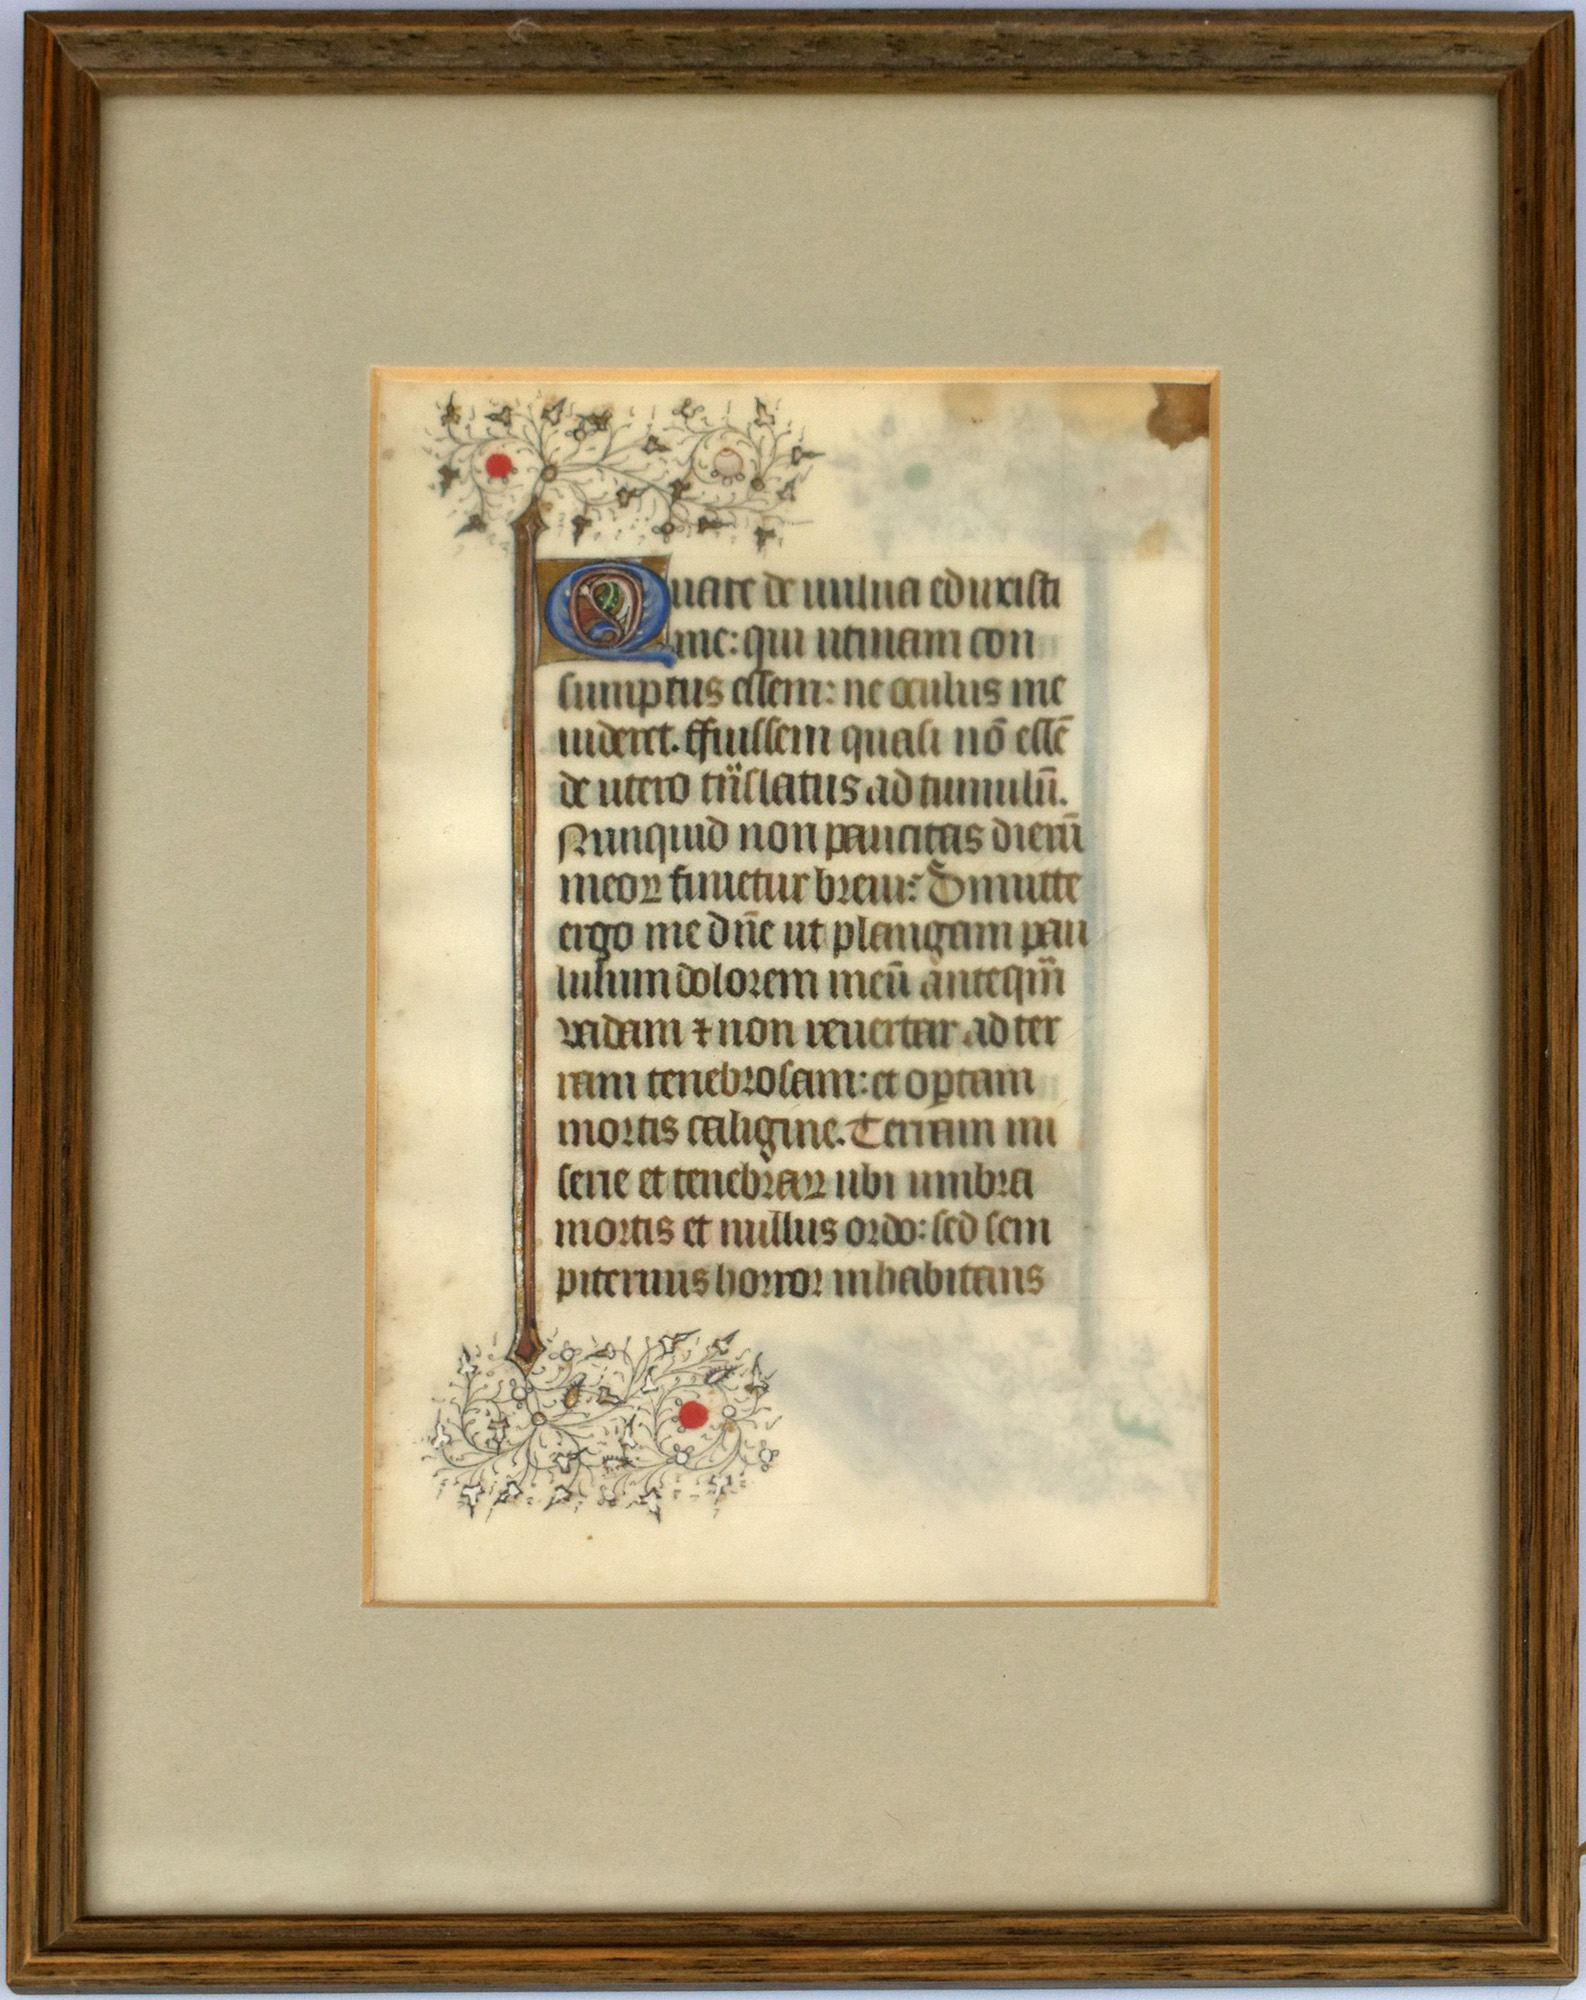 Quare de uulua eduxisti
me: qui utinam con
sumptus essem: ne oculus me
uideret. ffuissem quasi nō essē
de utero trãslatus ad tumulū.
Nunquid non paucitas dierū
meoꝝ finietur breui: Dimitte
ergo me dn̄e ut plangam pau
lulum dolorem meū anteqm̃
vadam ⁊ non reuertar ad ter
ram tenebrosam: et optam
mortis caligine. Terram mi
serie et tenebraꝝ ubi umbra
mortis et nullus ordo: sed sem
piternus horror inhabitans